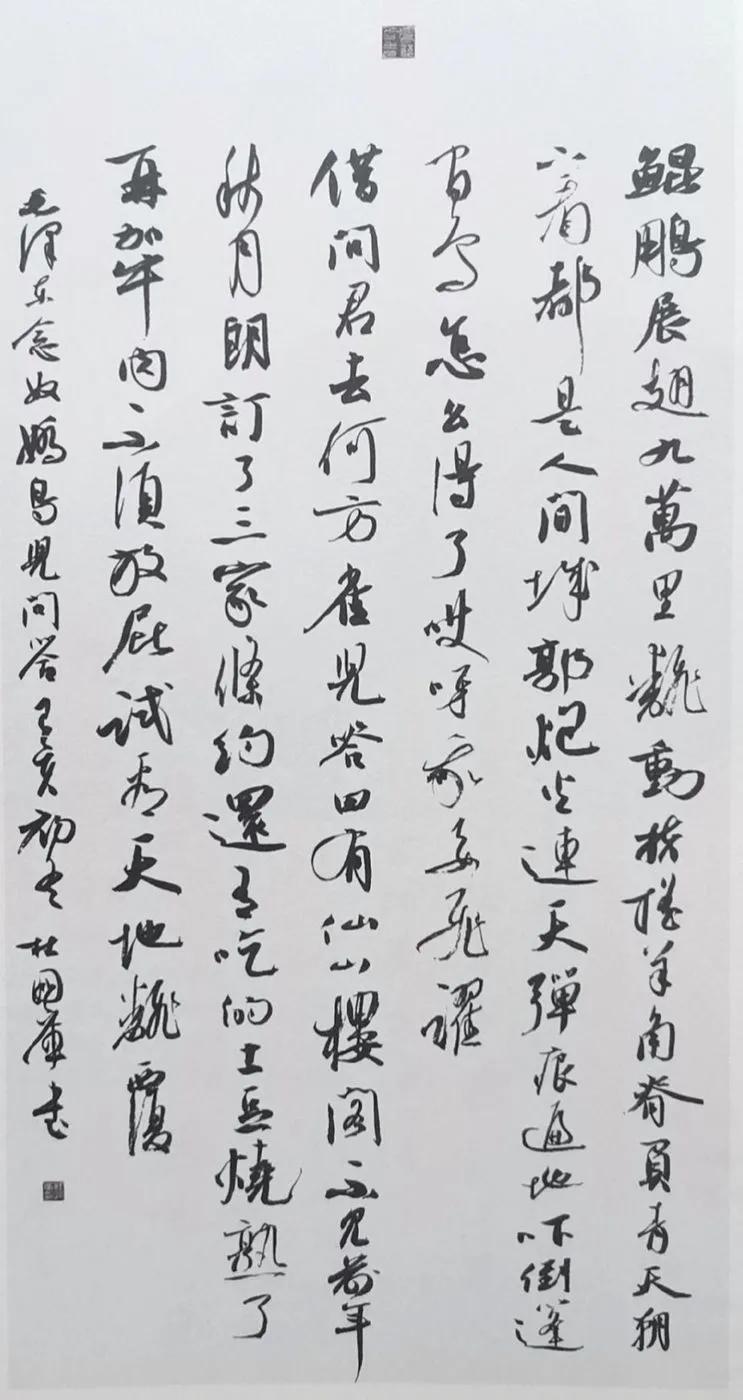 鯤鵬展翅九萬里翻動扶搖羊角背負青天朝
下看都是人間城郭炮火連天彈痕遍地吓倒蓬
間雀怎么得了哎呀我要飛躍
借問君去何方雀兒答曰有仙山樓閣不見前年
秋月朗訂了三家條約還有吃的土豆燒熟了
再加牛肉不須放屁試看天地翻覆
毛澤東念奴嬌鳥兒問答己亥初冬杜國庫書